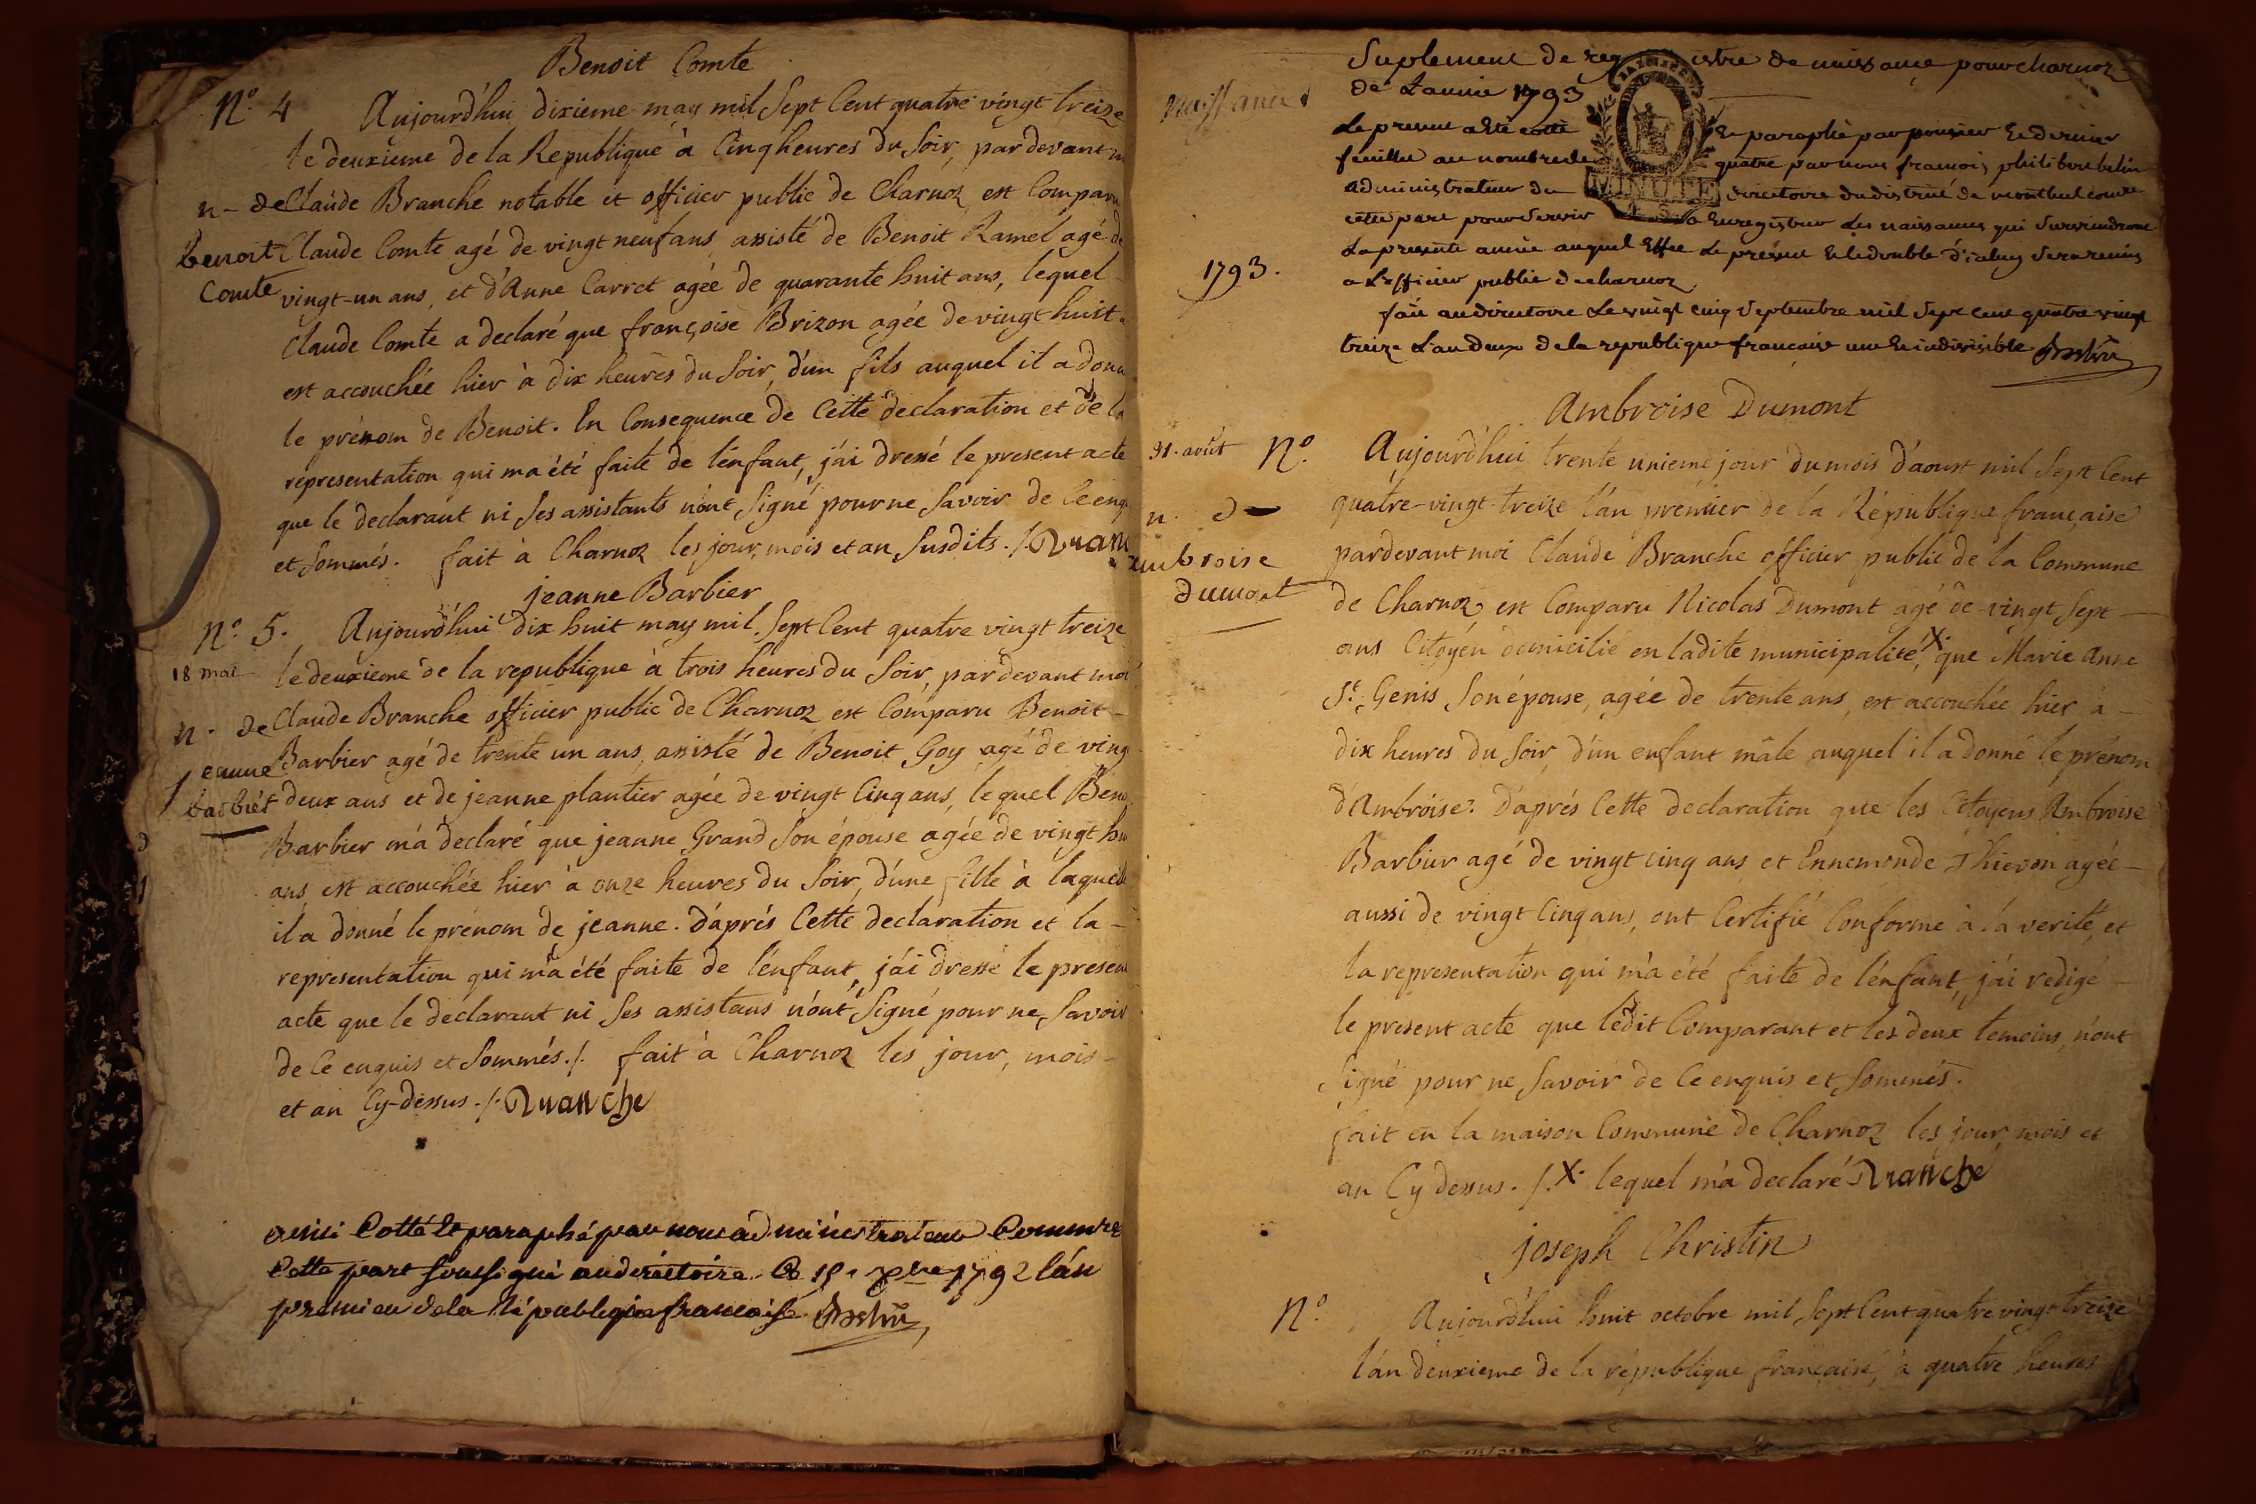 Benoit Comte
N.o 4 Aujourd'hui dixieme may mil Sept Cent quatre vingt treize
le deuxieme de la Republique à Cinq heures du Soir, pardevant m
n - de Claude Branche notable et officier public de Charnoz est Comparu
benoit Claude Comte agé de vingt neuf ans assisté de Benoit Ramel agé de
Comte vingt-un ans, et d'Anne Carret agée de quarante huit ans, lequel
Claude Comte a declaré que françoise Brizon agée de vingt huit
est accouchée hier à dix heures du Soir, d'un fils auquel il a donn
le prénom de Benoit. En Consequence de Cette declaration et de la
representation qui m'a été faite de l'enfant, j'ai dressé le present acte
que le declarant ni Ses assistants n'ont Signé pour ne Savoir de Ce enq
et Sommés. fait à Charnoz les jour, mois et an Susdits ./. Branc
jeanne Barbier
N.o 5. Aujourd'hui dix huit may mil Sept Cent quatre vingt treize
18 mai le deuxieme de la republique à trois heures du Soir, pardevant moi
n. de Claude Branche officier public de Charnoz est Comparu Benoit
jeanne Barbier agé de trente un ans, assisté de Benoit Goy agé de ving
barbier deux ans et de jeanne plantier agée de vingt Cinq ans, lequel Beno
Barbier m'a declaré que jeanne Grand Son épouse agée de vingt hui
ans, est accouchée hier à onze heures du Soir, d'une fille à laquelle
il a donné le prénom de jeanne. D'aprés Cette declaration et la
representation qui m'a été faite de l'enfant, j'ai dressé le present
acte que le declarant ni Ses assistans n'ont Signé pour ne Savoir
de Ce enquis et Sommés ./. fait à Charnoz les jour, mois
et an Cy-dessus ./. Branche
Cotté et paraphé par nous administrateur Commre
Cette part Soussigné au directoire Ce 15e Xbre 1792 l'an
premier de la République françoise. Belin
Naissances
Suplement de registre de naissance pour charnoz
de L'année 1793
Le present a été cotté et paraphé par premier et dernier
feuillet au nombre de quatre par nous françois philibert belin
administrateur du MINUTE directoire du district de montluel comre
cette part pour Servir à Enregistrer Les naissances qui Surviendront
La presente année auquel Effet Le présent et le double d'icelui Sera remis
1793. a L'officier public de charnoz
fait au directoire Le vingt cinq Septembre mil Sept cent quatre vingt
treize L'an deux de la republique francaise une et indivisible Belin
Ambroise Dumont
31. août N.o Aujourd'hui trente unieme jour du mois d'aoust mil Sept Cent
quatre-vingt-treize l'an premier de la République française
n. de pardevant moi Claude Branche officier public de la Commune
ambroise dumont de Charnoz, est Comparu Nicolas Dumont agé de vingt Sept
ans Citoyen domicilié en ladite municipalité, X. que Marie Anne
St. Genis Son épouse, agée de trente ans, est accouchée hier à
dix heures du Soir, d'un enfant mâle auquel il a donné le prénom
d'Ambroise. D'aprés Cette declaration que les Citoyens Ambroise
Barbier agé de vingt cinq ans et Ennemonde Thievon agée
aussi de vingt Cinq ans, ont Certifié Conforme à la verité, et
la representation qui m'a été faite de l'enfant, j'ai redigé
le present acte que ledit Comparant et les deux temoins, n'ont
Signé pour ne Savoir de Ce enquis et Sommés.
fait en la maison Commune de Charnoz les jour, mois et
an Cy dessus ./. X. lequel m'a declaré Branche
joseph Christin
N.o Aujourd'hui huit octobre mil Sept Cent quatre vingt treize
l'an deuxieme de la république française, à quatre heures